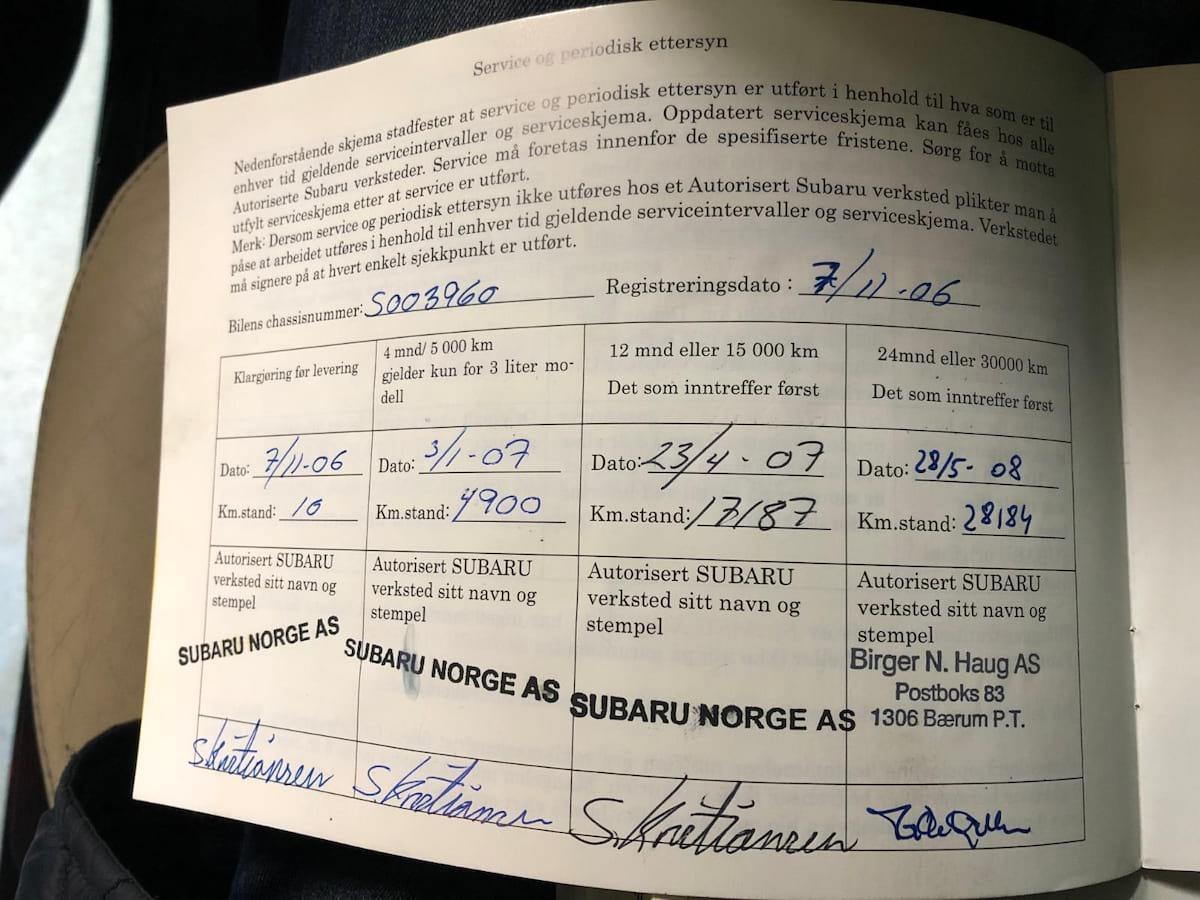 Service og periodisk ettersyn
Nedenforstående skjema stadfester at service og periodisk ettersyn er utført i henhold til hva som er til
enhver tid gjeldende serviceintervaller og serviceskjema. Oppdatert serviceskjema kan fåes hos alle
Autoriserte Subaru verksteder. Service må foretas innenfor de spesifiserte fristene. Sørg for å motta
utfylt serviceskjema etter at service er utført.
Merk: Dersom service og periodisk ettersyn ikke utføres hos et Autorisert Subaru verksted plikter man å
påse at arbeidet utføres i henhold til enhver tid gjeldende serviceintervaller og serviceskjema. Verkstedet
må signere på at hvert enkelt sjekkpunkt er utført.
Bilens chassisnummer: S003960 Registreringsdato : 7/11-06
Klargjøring før levering
4 mnd/ 5 000 km
gjelder kun for 3 liter mo-
dell
12 mnd eller 15 000 km
Det som inntreffer først
24mnd eller 30000 km
Det som inntreffer først
Dato: 7/11-06
Km.stand: 10
Dato: 3/1-07
Km.stand: 4900
Dato: 23/4-07
Km.stand: 17187
Dato: 28/5-08
Km.stand: 28184
Autorisert SUBARU
verksted sitt navn og
stempel
SUBARU NORGE AS
Autorisert SUBARU
verksted sitt navn og
stempel
SUBARU NORGE AS
Autorisert SUBARU
verksted sitt navn og
stempel
SUBARU NORGE AS
Autorisert SUBARU
verksted sitt navn og
stempel
Birger N. Haug AS
Postboks 83
1306 Bærum P.T.
S.Kristiansen
S.Kristiansen
S.Kristiansen